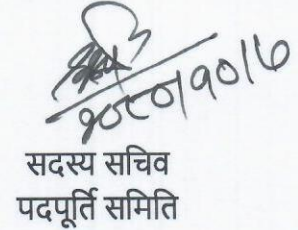 २०८०।१०।७
सदस्य सचिव
पदपूर्ति समिति